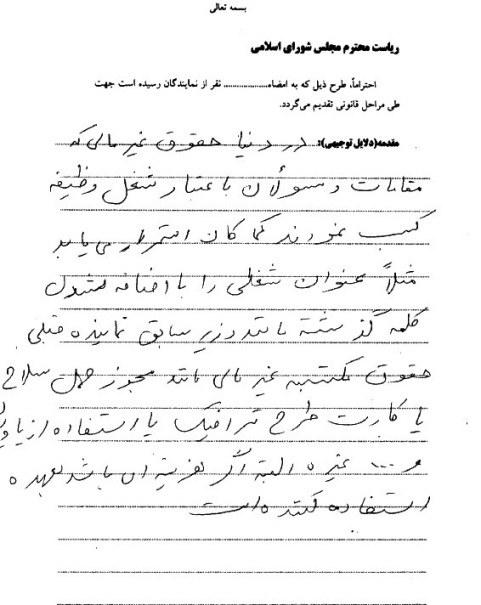 بسمه تعالی
ریاست محترم مجلس شورای اسلامی
احتراماً، طرح ذیل که به امضاء................ نفر از نمایندگان رسیده است جهت
طی مراحل قانونی تقدیم می‌گردد.
مقدمه(دلایل توجیهی): در دنیا حقوق غیر مالی که
مقامات و مسولان با عتبار شغل و وظیفه
کسب نمودند کما کان استمرار می یابد
مثلاً عنوان شغلی را با اضافه نمودن
کلمه گذشته مانند وزیر سابق نماینده قبلی
حقوق مکتسبه غیر مالی مانند مجوز حمل سلاح
یا کارت طرح ترافیک یا استفاده از
و ... غیره البته اگر هزینه ای باشد بعهده
استفاده کننده است